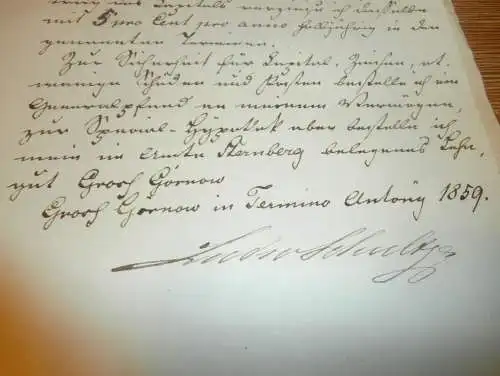 des Capitals verzinse ich dasselbe
mit 5 pro Cent pro anno halbjährig in den
genannten Terminen.
Zur Sicherheit für Capital, Zinsen, et-
wanige Schäden und Kosten bestelle ich ein
Generalpfand an meinem Vermögen,
zur Special-Hypothek aber bestelle ich
mein im Amte Sternberg belegenes Lehn-
gut Groß Görnow
Groß Görnow in Termino Antony 1859.
Schultze